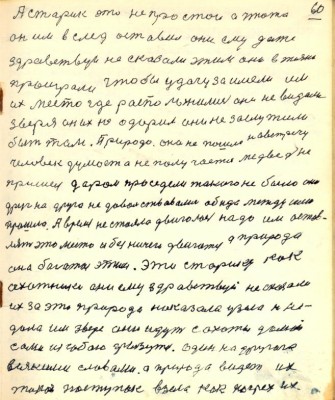 60
А старик это не простой а тот
он им в след оставил они ему даже
здравствуй не сказали этим они в жизни
проиграли чтобы удачу заимели им
их место где расположились они не видали
зверя он их не одарил они не заслужили
быть там. Природа она не пошла навстречу
человек думает а не получается медведь не
пришел даром просидели такого не было они
друг на друга не довольствовали обида между ними
прошла. А время не стояло двигалось надо им остав-
лять это место и без ничего двигать а природа
она богата этим. Это старик как
охотники они ему здравствуй не сказали
их за это природа наказала ушли к
дома им звери они идут с охоты домой
сами с собою один на другого
всякими словами. а природа видит их
такой поступок взяла как их